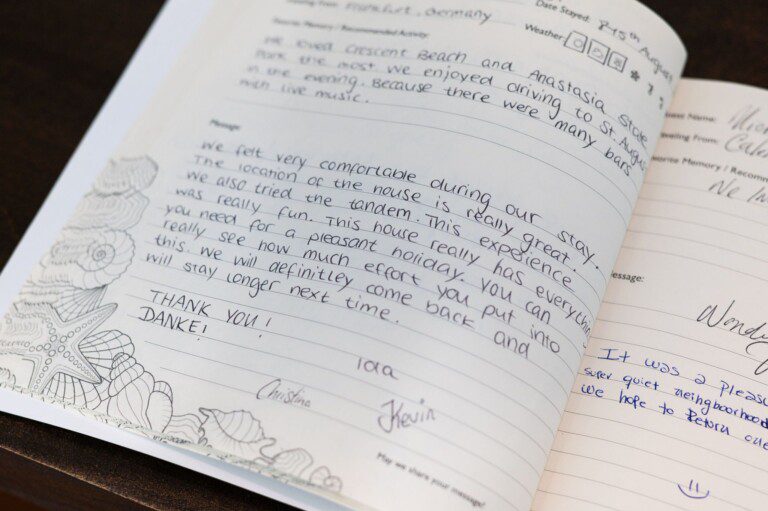 Traveling From: Frankfurt, Germany
Date Stayed: 8-15th August
Weather:
Favorite Memory / Recommended Activity:
We loved Crescent Beach and Anastasia State
Park the most. We enjoyed driving to St. Augus
in the evening. Because there were many bars
with live music.
Message:
We felt very comfortable during our stay.
The location of the house is really great.
We also tried the tandem. This experience
was really fun. This house really has everythin
you need for a pleasant holiday. You can
really see how much effort you put into
this. We will definitley come back and
will stay longer next time.
THANK YOU!
DANKE!
Christina
Kevin
May we share your message?
Name:
eling From:
orite Memory / Recomm
essage:
It was a pleasu
super quiet neingboorhood
we hope to Return